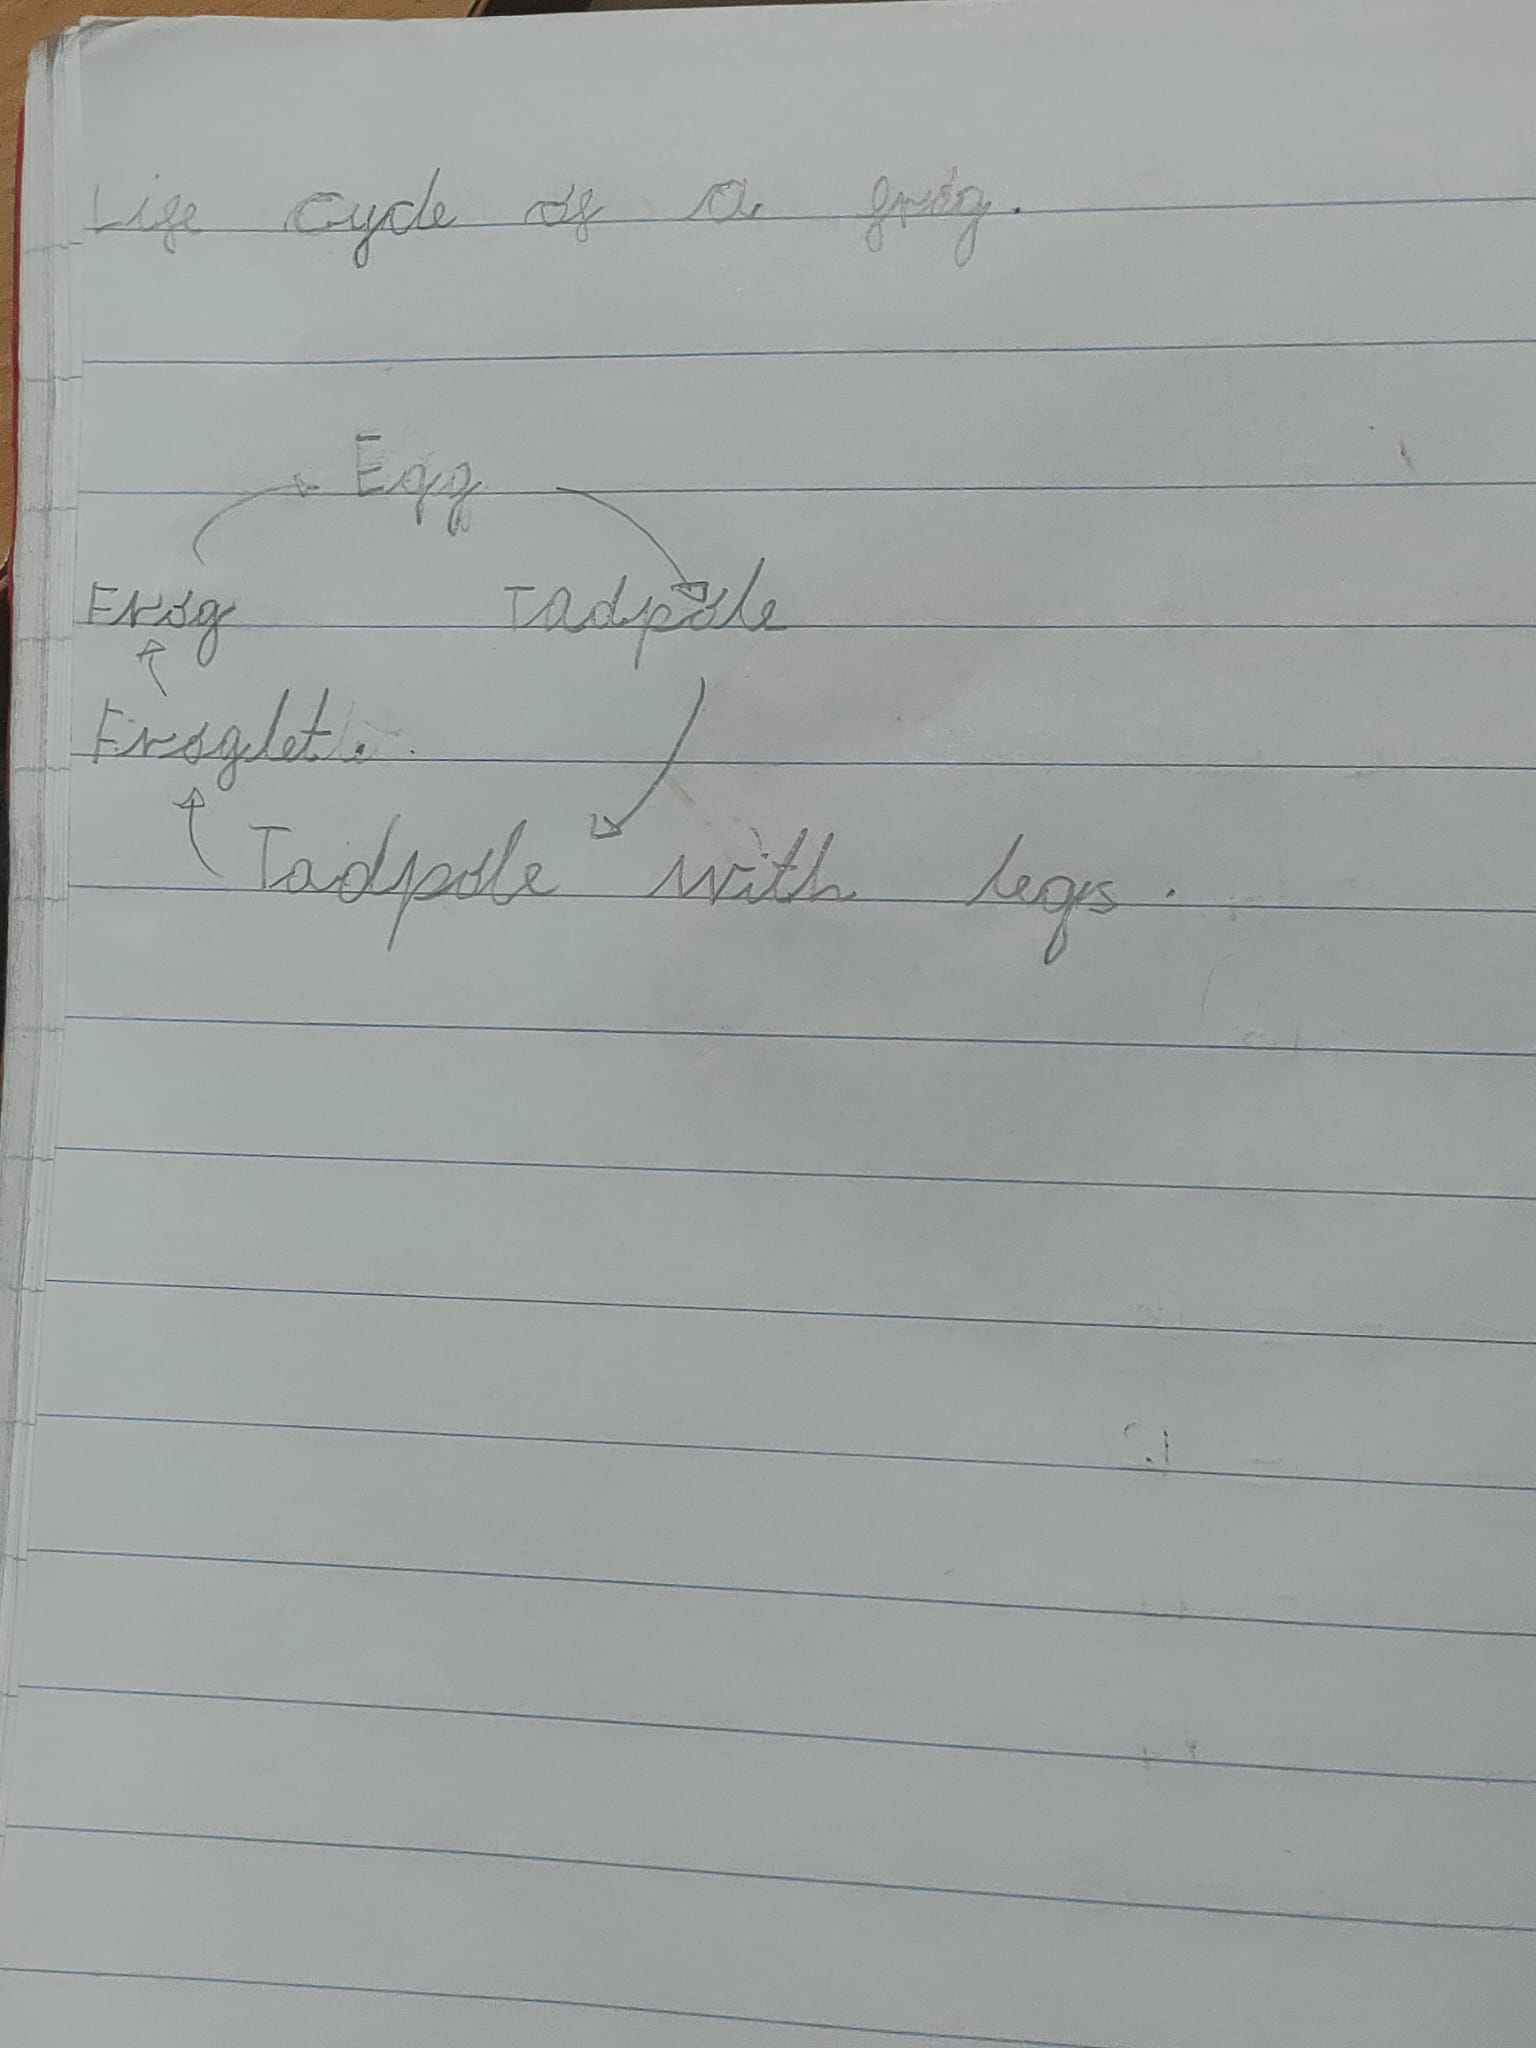 Life cycle of a frog.
Egg
Frog Tadpole
Froglet.
Tadpole with legs.